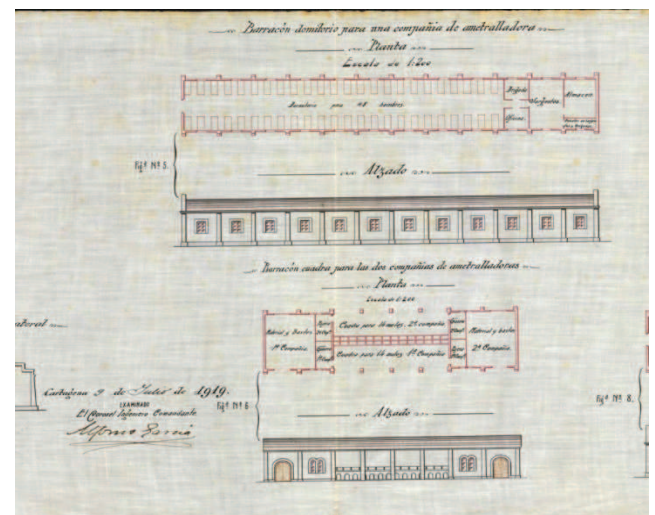 Barracón dormitorio para una compañia de ametralladora
Planta
Escala de 1:200
Dormitorio para 48 hombres
Brigada
Oficina
Sargentos
Almacen
Figª Nº 5.
Alzado
Barracón cuadra para las dos compañias de ametralladoras
Planta
Escala de 1:200
Material y bastes
1ª Compañia
Cuadra para 16 mulos, 2ª compañia
Cuadra para 16 mulos, 1ª Compañia
Material y bastes
2ª Compañia
ateral
Cartagena 9 de Julio de 1919.
EXAMINADO
El Coronel Ingeniero Comandante
Alfonso García
Figª Nº 6
Alzado
Figª Nº 8.